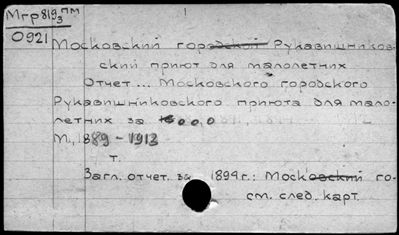 Мгр 819 пм
3
0921
Московский городской Рукавишников-
ский приют для малолетних
Отчет... Московского городского
Рукавишниковского приюта для мало-
летних за 1000
М., 1889 - 1913
т.
Загл. отчет. за 1894г.: Московский го-
см. след. карт.